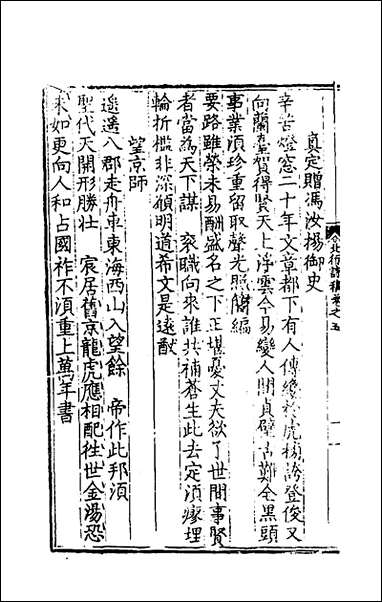 真定贈馮汝揚御史
辛苦燈窓二十年文章都下有人傳纔於虎榜誇登俊又
向蘭臺賀得賢天上浮雲今易變人間貞璧古難全黑頭
事業須珍重留取聲光照簡編
要路雖榮未易酬盛名之下正堪憂丈夫欲了世間事賢
者當為天下謀 衮職向來誰共補蒼生此去定須瘳埋
輪折檻非深願明道希文是遠猷
望京師
遥遥八郡走舟車東海西山入望餘 帝作此邦須
聖代天開形勝壮 宸居舊京龍虎應相配徃世金湯恐
未如更向人和占國祚不須重上萬年書
北行詩稿卷之五